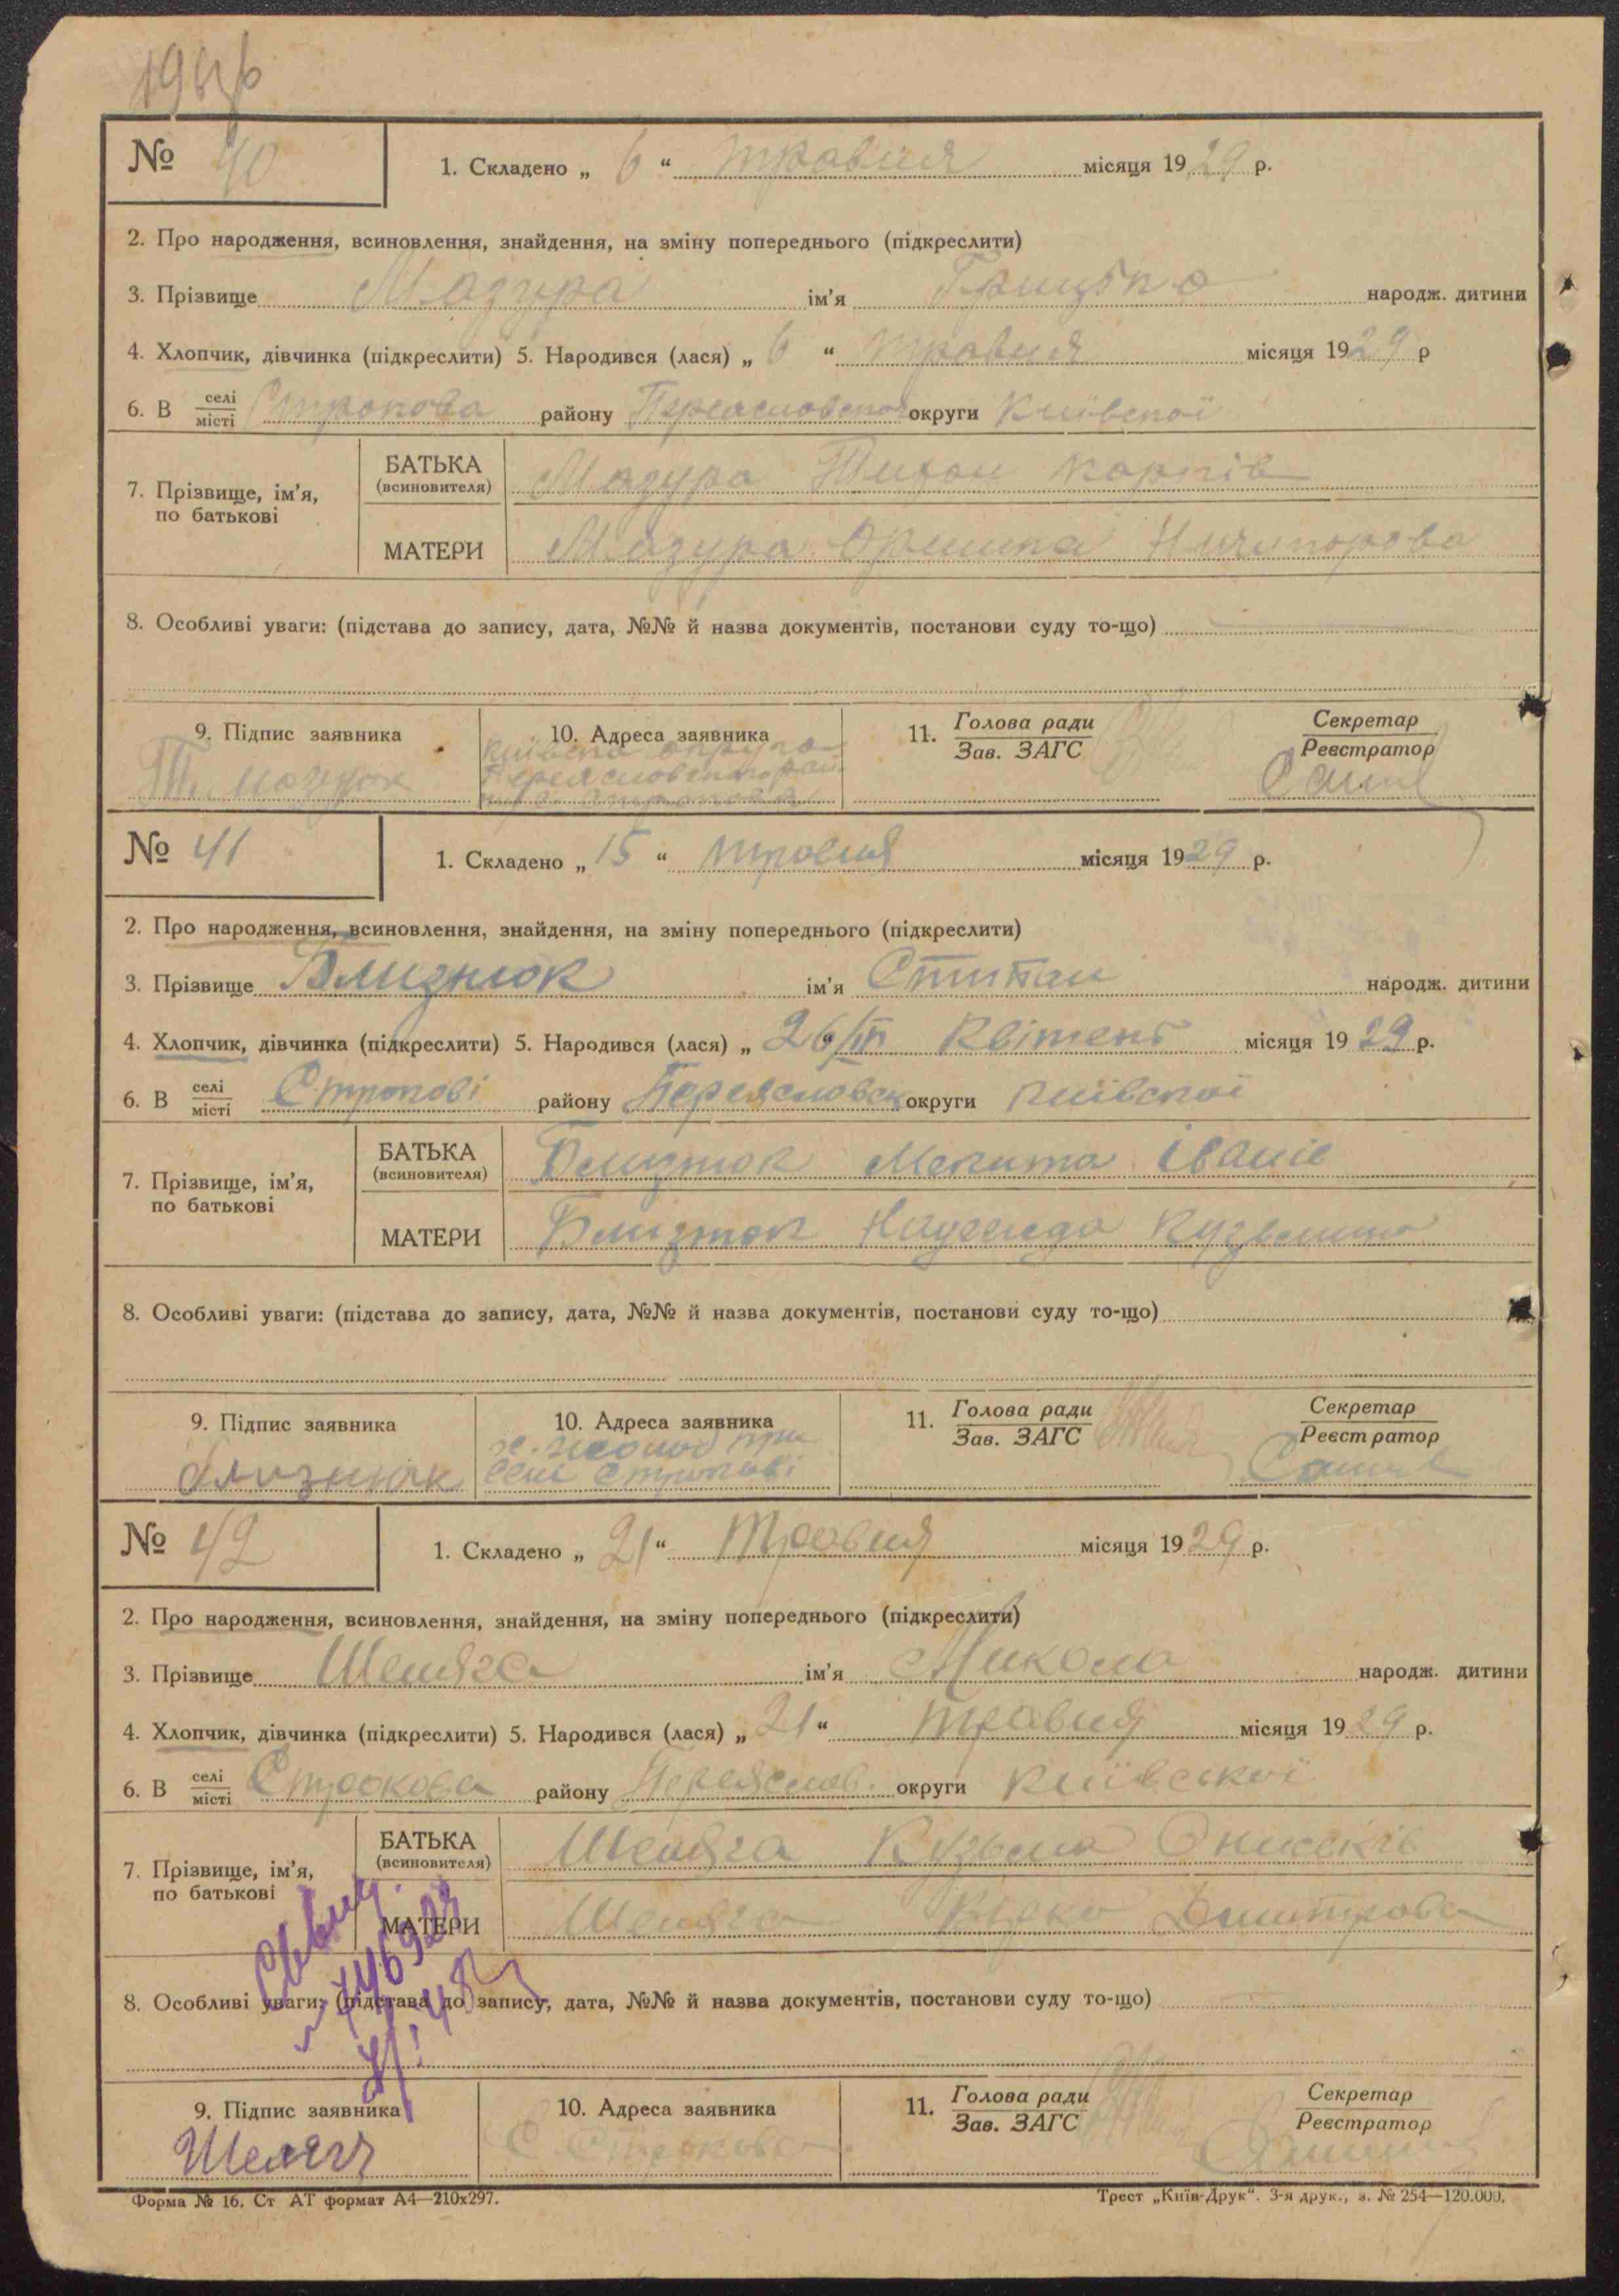 № 40
1. Складено „ 6 “ травня місяця 1929 р.
2. Про народження, всиновлення, знайдення, на зміну попереднього (підкреслити)
3. Прізвище Мазура ім’я Грицько народж. дитини
4. Хлопчик, дівчинка (підкреслити) 5. Народився (лася) „ 6 “ травня місяця 1929 р
6. В селі/місті Строкова району Переясловської округи Київської
7. Прізвище, ім’я, по батькові
БАТЬКА (всиновителя) Мазура Тихон Карпів
МАТЕРИ Мазура Оришка Ничипорова
8. Особливі уваги: (підстава до запису, дата, №№ й назва документів, постанови суду то-що)
9. Підпис заявника 10. Адреса заявника 11. Голова ради Секретар
Зав. ЗАГС Реєстратор
Київська округа
Т. Мазура
№ 41
1. Складено „ 15 “ травня місяця 1929 р.
2. Про народження, всиновлення, знайдення, на зміну попереднього (підкреслити)
3. Прізвище Близнюк ім’я Степан народж. дитини
4. Хлопчик, дівчинка (підкреслити) 5. Народився (лася) „ 26/IV Квітень місяця 1929 р.
6. В селі/місті Строкові району Переясловск округи Київської
7. Прізвище, ім’я, по батькові
БАТЬКА (всиновителя) Близнюк Микита Іванів
МАТЕРИ Близнюк Надежда
8. Особливі уваги: (підстава до запису, дата, №№ й назва документів, постанови суду то-що)
9. Підпис заявника 10. Адреса заявника 11. Голова ради Секретар
Зав. ЗАГС Реєстратор
при
Близнюк селі Строкові
№ 42
1. Складено „ 21 “ Травня місяця 1929 р.
2. Про народження, всиновлення, знайдення, на зміну попереднього (підкреслити)
3. Прізвище Шеляга ім’я Микола народж. дитини
4. Хлопчик, дівчинка (підкреслити) 5. Народився (лася) „ 21 “ травня місяця 1929 р.
6. В селі/місті Строкова району Переяслов. округи Київської
7. Прізвище, ім’я, по батькові
БАТЬКА (всиновителя) Шеляга Кузьма
МАТЕРИ Шеляга Дмитрова
8. Особливі уваги: (підстава до запису, дата, №№ й назва документів, постанови суду то-що)
9. Підпис заявника 10. Адреса заявника 11. Голова ради Секретар
Зав. ЗАГС Реєстратор
Шеляга С. Строкова
Форма № 16. Ст АТ формат А4—210x297. Трест „Київ-Друк“. 3-я друк., з. № 254—120.000.